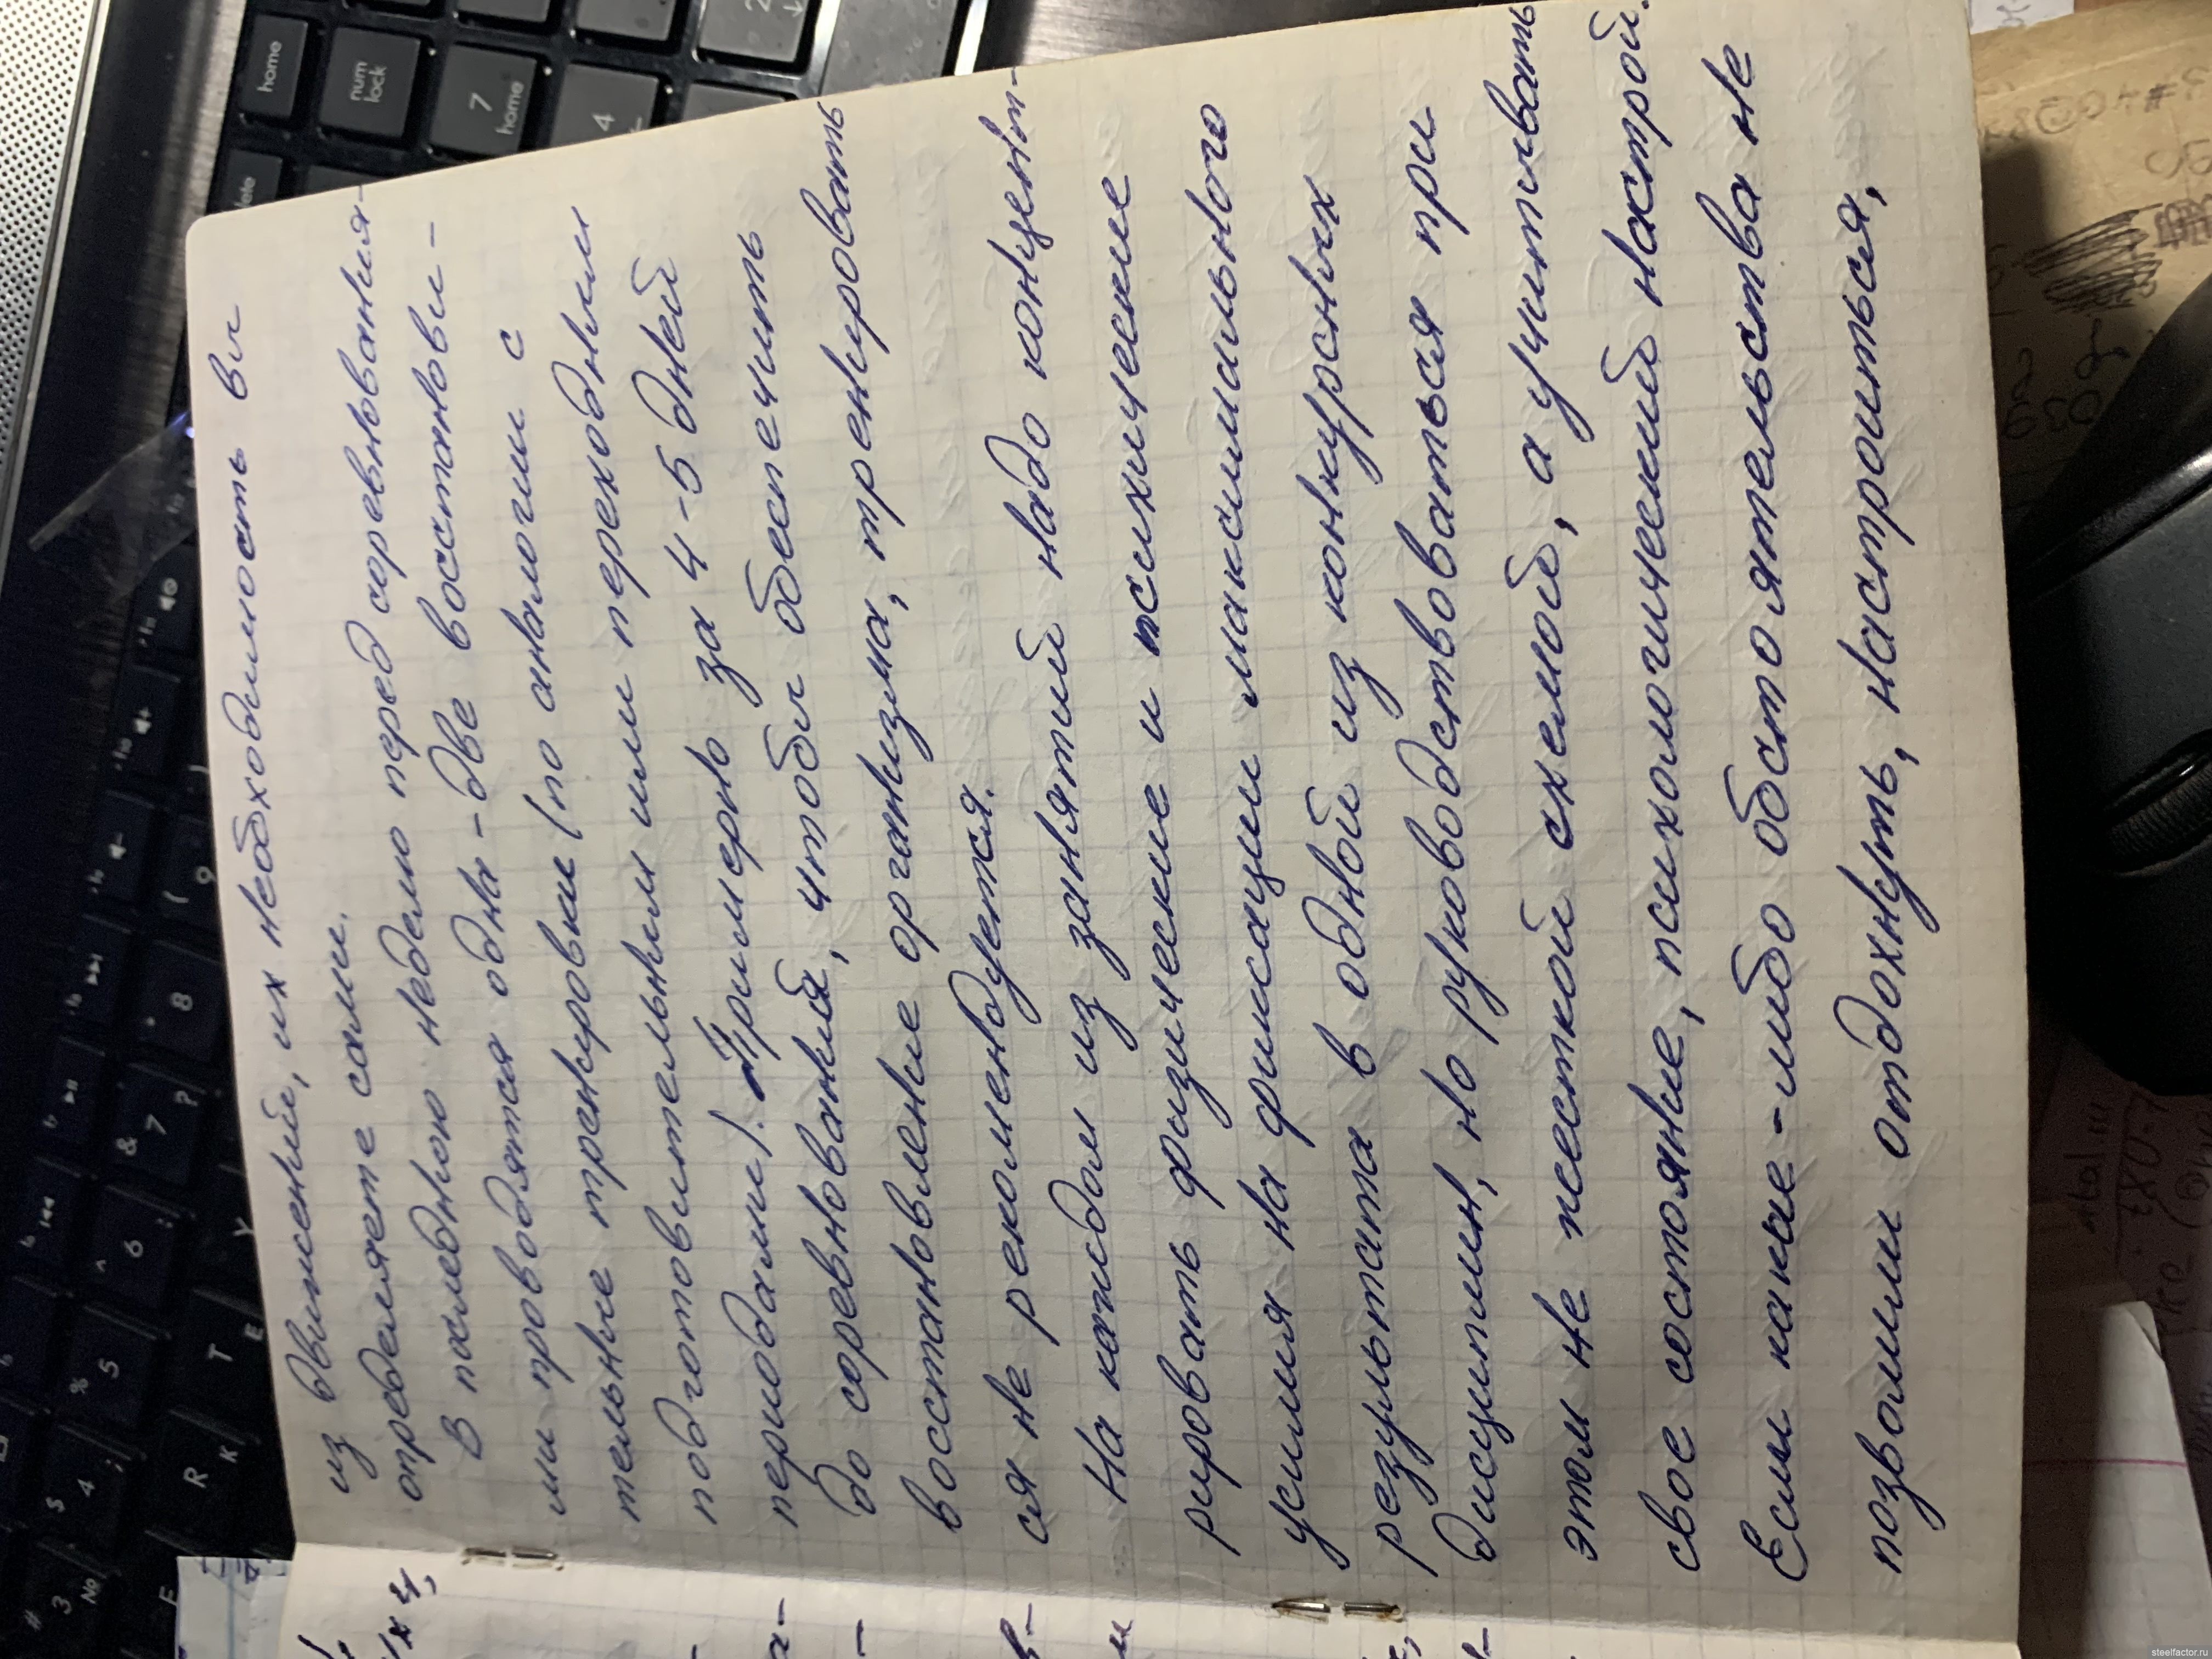 из движений, их необходимость вы
определяете сами.
В последнюю неделю перед соревнования-
ми проводятся одна-две восстанови-
тельные тренировки (по аналогии с
подготовительным или переходным
периодами). Примерно за 4-5 дней
до соревнований, чтобы обеспечить
восстановление организма, тренировать
ся не рекомендуется.
На каждом из занятий надо концент-
рировать физические и психические
усилия на фиксации максимального
результата в одной из конкурсных
дисциплин, но руководствоваться при
этом не жесткой схемой, а учитывать
свое состояние, психологический настрой.
Если какие-либо обстоятельства не
позволили отдохнуть, настроиться,
home
num lock
7 home
4
8
7
6
5
4
3
E
T
R
K
steelfactor.ru